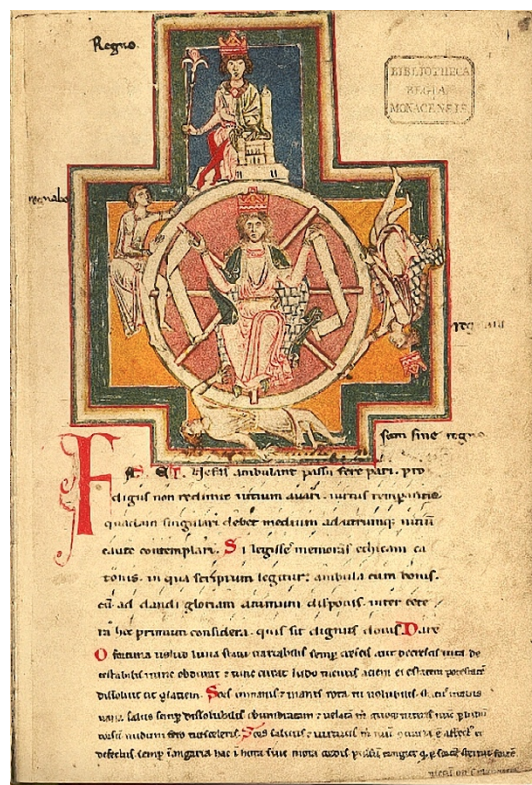 Regno.
BIBLIOTHECA
REGIA
MONACENSIS.
regnabo
regnaui
sum sine regno
Fas et nefas ambulant passu fere pari. pro
digus non redimit uitium auari. uirtus temperantia
quadam singulari debet medium ad utrumque uitium
caute contemplari. Si legisse memoras ethicam ca
tonis. in qua scriptum legitur; ambula cum bonis.
cum ad dandi gloriam animum disponis. inter cete
ra hoc primum considera. quis sit dignus donis. Dare
O fortuna uelud luna statu uariabilis semper crescis aut decrescis uita de
testabilis nunc obdurat et tunc curat ludo mentis aciem egestatem potestatem
dissoluit ut glaciem. Sors immanis et inanis rota tu uolubilis status malus
uana salus semper dissolubilis obumbratam et uelatam
dorsum nudum fero tui sceleris. Sors salutis et uirtutis michi nunc contraria est affectus et
defectus semper in angaria hac in hora sine mora cordis pulsum tangite